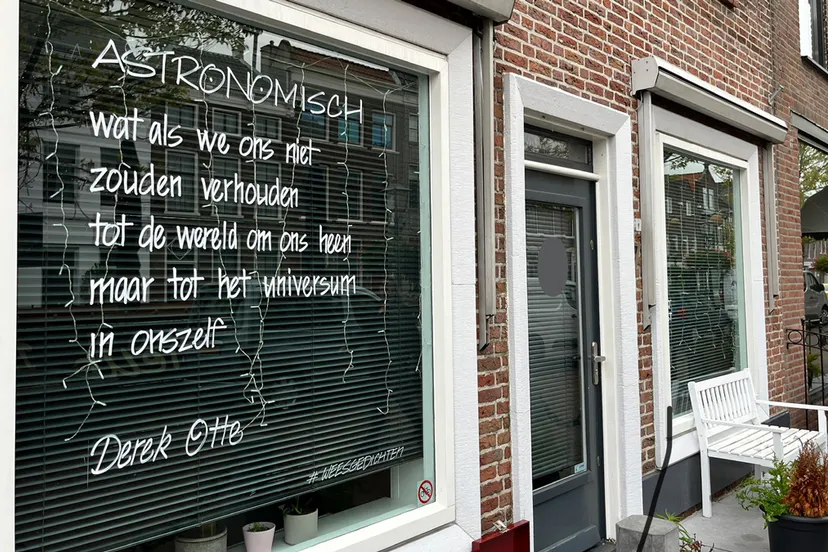 ASTRONOMISCH
wat als we ons niet
zouden verhouden
tot de wereld om ons heen
maar tot het universum
in onszelf
Derek Otte
#WEESGEDICHTEN